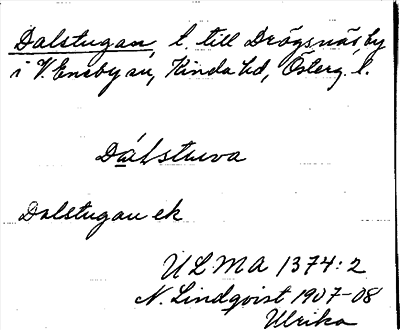 Dalstugan, l. till Drögsnäs by
i V. Eneby sn, Kinda hd, Österg. l.
Dálstuva
Dalstugan ek
ULMA 1374:2
N. Lindqvist 1907-08
Ulrika